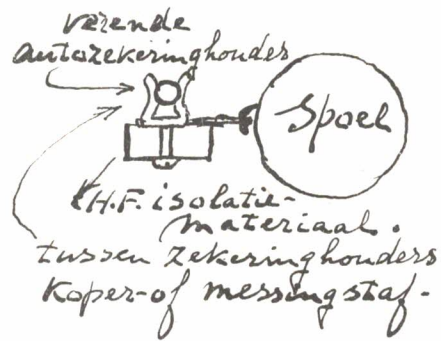 verende
autozekeringhouders
Spoel
H.F. isolatie-
materiaal.
tussen zekeringhouders
koper-of messingstaf-